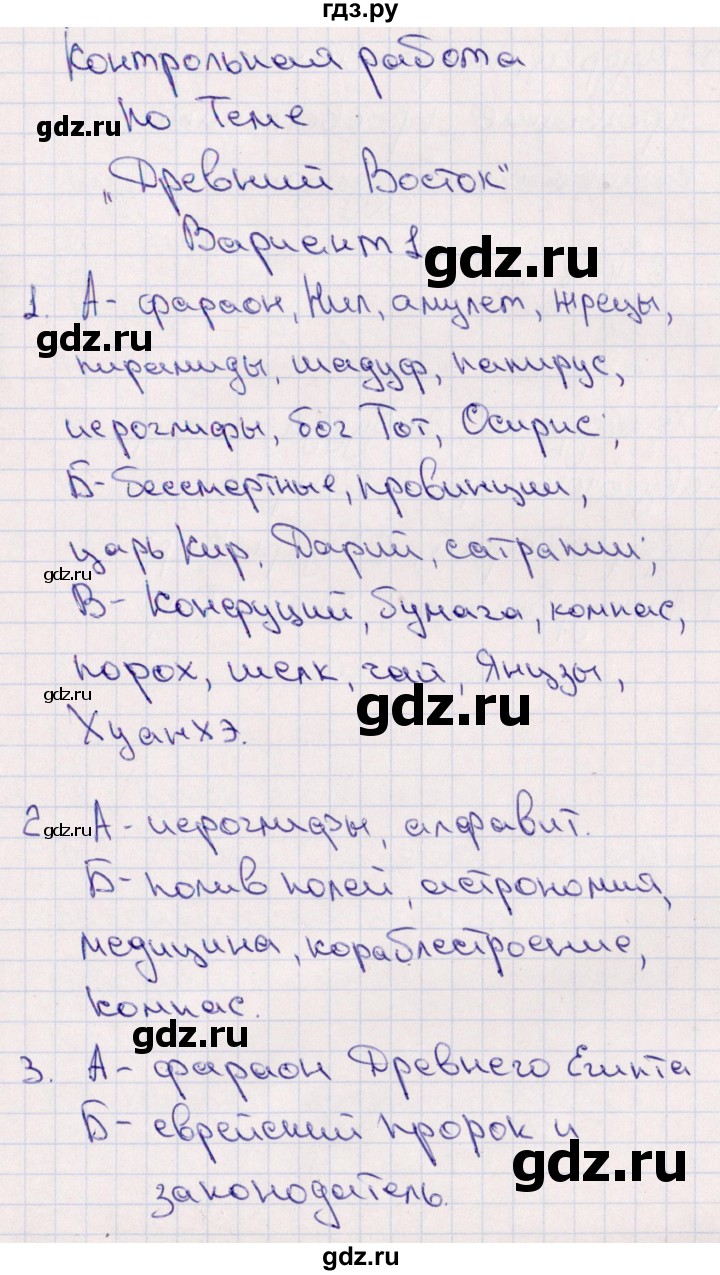 гдз.ру
Контрольная работа
gdz.ru по Теме
„Древний Восток"
Вариант 1
gdz.ru
1. А - фараон, Нил, амулет, жрецы,
gdz.ru
пирамиды, шадуф, папирус,
иероглифы, бог Тот, Осирис;
Б - бессмертные, провинции,
царь Кир, Дарий, сатрапии;
gdz.ru
В - Конфуций, бумага, компас,
порох, шелк, чай, Янцзы,
gdz.ru
gdz.ru
Хуанхэ.
2. gdz.ru А - иероглифы, алфавит.
Б - полив полей, астрономия,
медицина, кораблестроение,
компас.
gdz.ru
3. А - фараон Древнего Египта
Б - еврейский пророк и
gdz.ru
законодатель.
gdz.ru